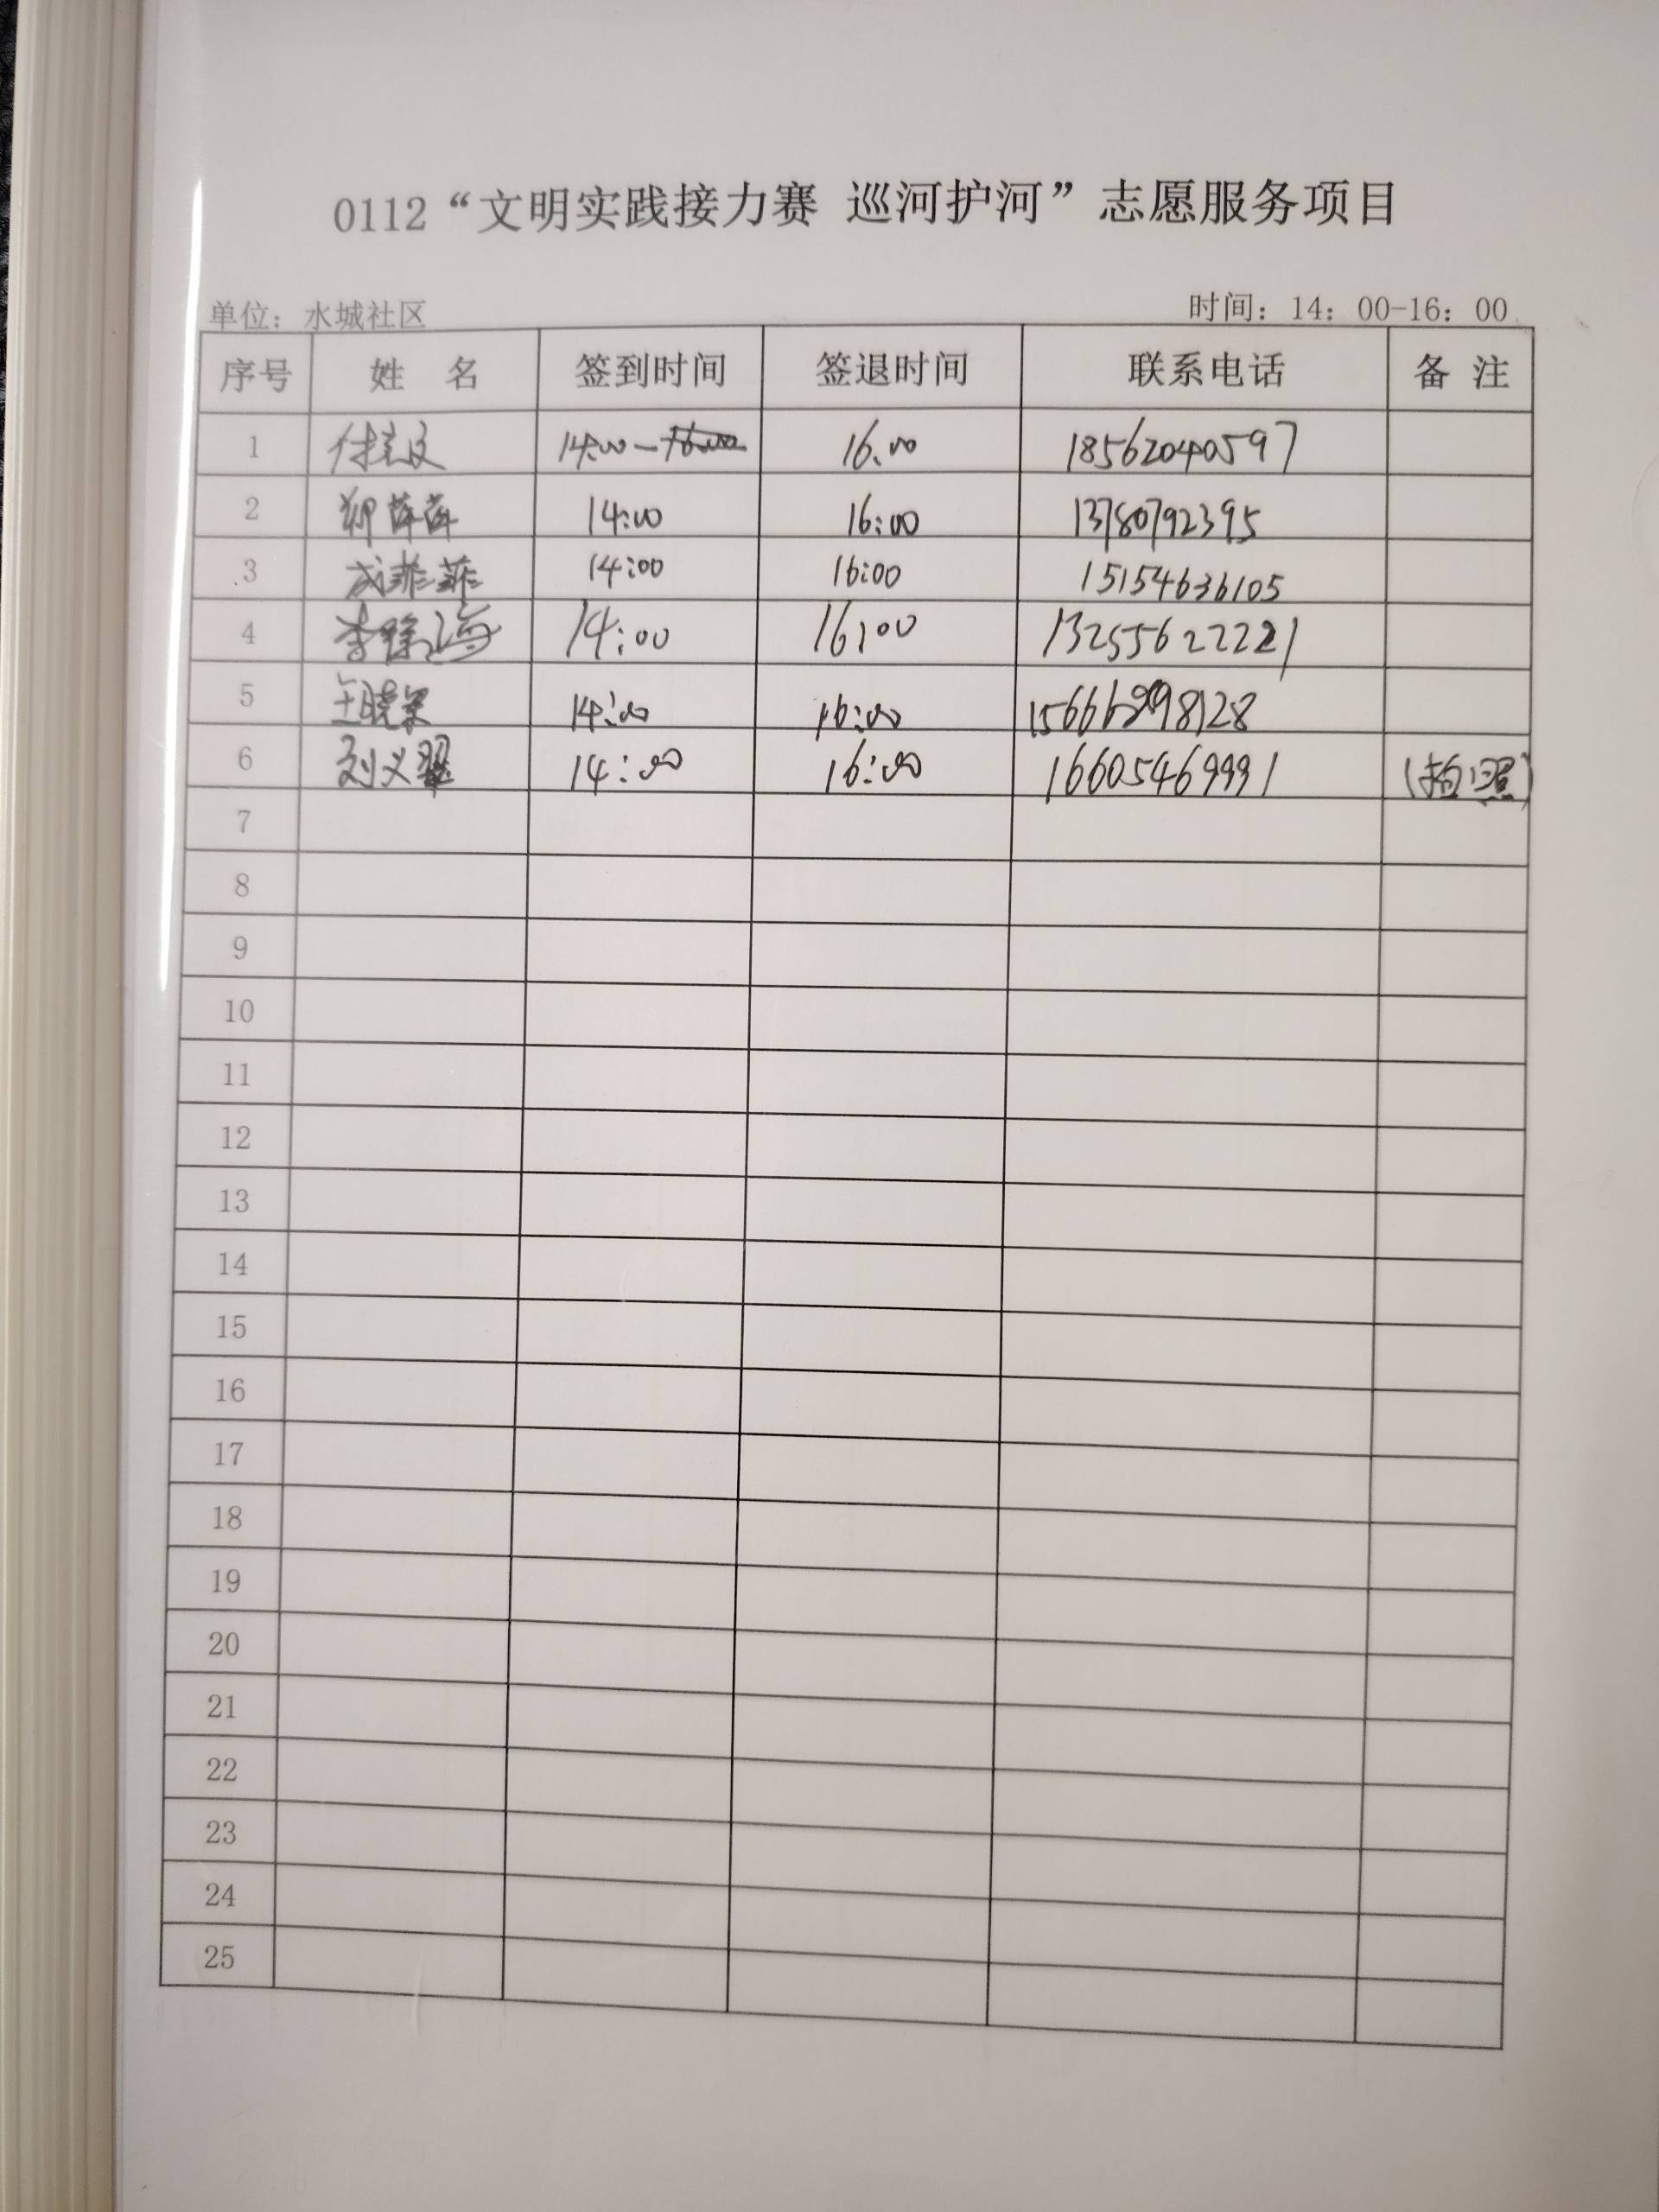 0112“文明实践接力赛 巡河护河”志愿服务项目
单位：水城社区 时间：14：00-16：00
序号 姓 名 签到时间 签退时间 联系电话 备 注
1 14:00— 16:00 18562040597
2 郑萍萍 14:00 16:00 13780792395
3 成菲菲 14:00 16:00 15154636105
4 李 14:00 16:00 13255622221
5 王晓 14:00 16:00
6 刘义翠 14:00 16:00 16605469991 (拍照)
7
8
9
10
11
12
13
14
15
16
17
18
19
20
21
22
23
24
25